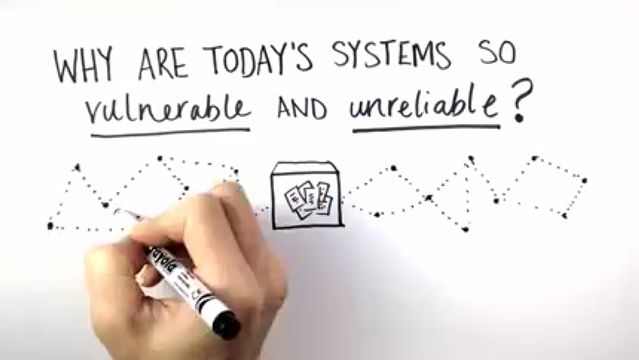 WHY ARE TODAY'S SYSTEMS SO
vulnerable AND unreliable?
Crayola